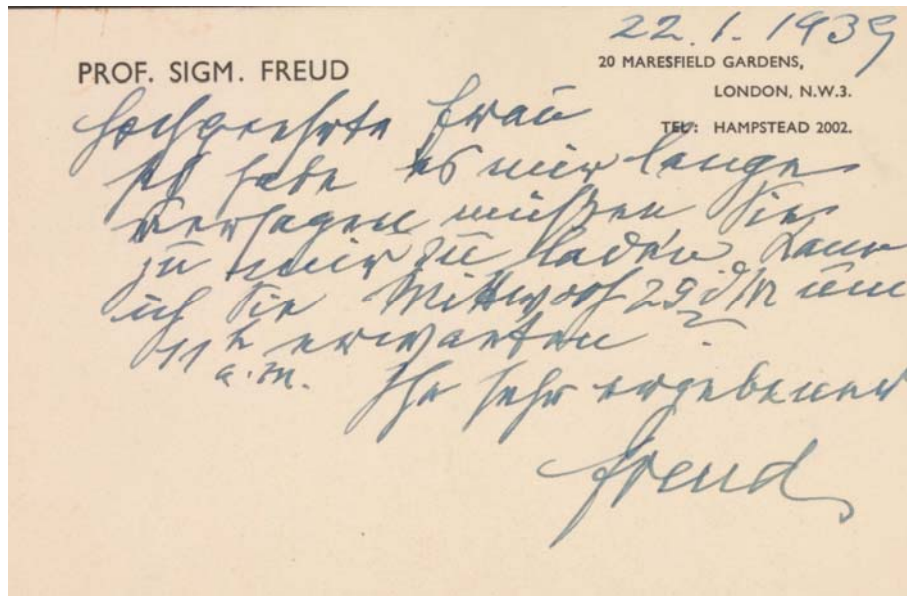 22.1.1939
PROF. SIGM. FREUD
20 MARESFIELD GARDENS,
LONDON, N.W.3.
TEL: HAMPSTEAD 2002.
Hochgeehrte Frau
Ich habe es mir lange
versagen müßen Sie
zu mir zu laden. Kann
ich Sie Mittwoch 25 d/M um
11h erwarten?
a.m.
Ihr sehr ergebener
Freud